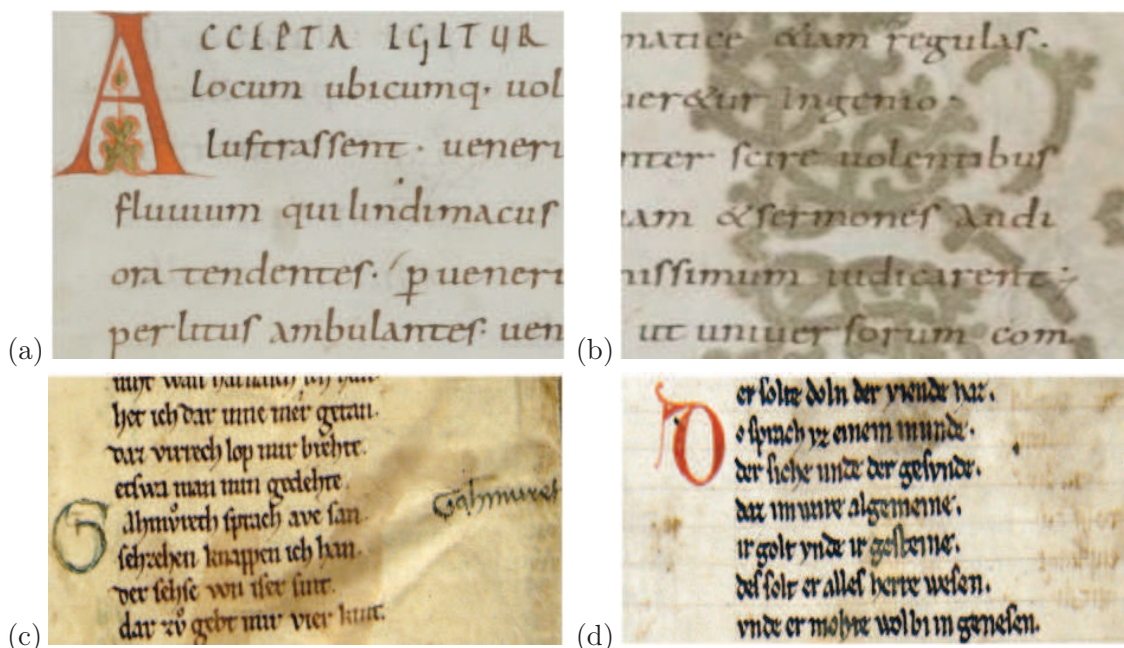 (a)
ACCEPTA IGITUR
locum ubicumq· uol
luſtraſſent · ueneri
fluuium qui lindimacuſ
ora tendentes · p̄ueneri
perlitus ambulantes· uen
(b)
matice &iam regulaſ.
uer&ur ingenio·
nter ſcire uolentibus
iam &ſermoneſ audi
niſſimum iudicarent;
ut uniuerſorum com
(c)
her ich dar inne mer getan·
daz virrech lop mir brehte·
etſwa man min gedehte·
Gahmvͦreth ſprach ave ſan·
Gahmuret
ſehzehen knappen ich han·
der ſehſe von iſer ſint·
dar zvͦ gebt mir vier kint·
(d)
er ſolte doln der viende haz.
Do ſprach vz einem munde·
der ſiche unde der geſvnde·
daz im were algemeine·
ir golt vnde ir geſteine·
des ſolt er alles herre weſen.
vnde er mohte wol bi in geneſen.